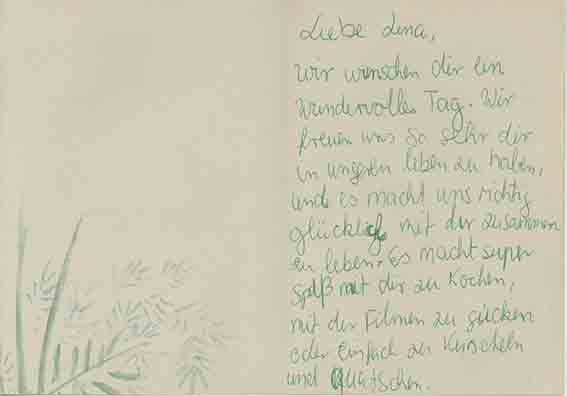 Liebe Lena,
wir wünschen dir ein
wundervolles Tag. Wir
freuen uns so sehr dir
in unseren leben zu haben,
und es macht uns richtig
glücklich mit dir zusammen
zu leben. Es macht super
Spaß mit dir zu Kochen,
mit dir Filmen zu gücken
oder einfach zu Kuscheln
und Quatschen.